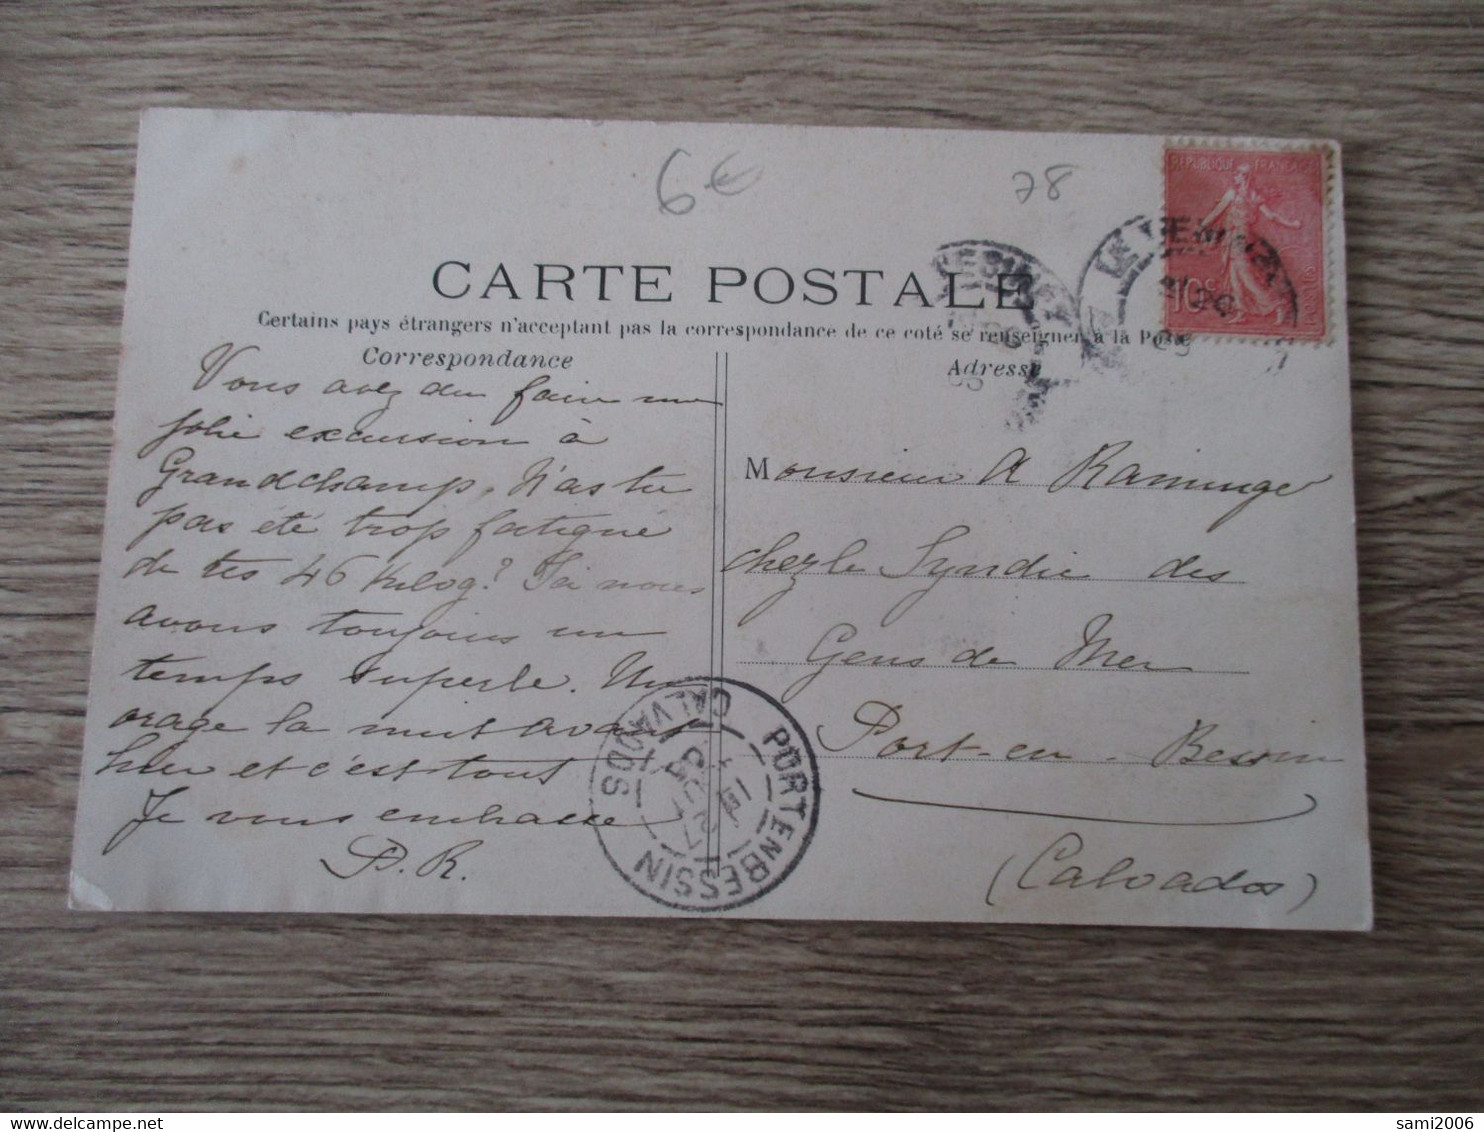 6€
78
REPUBLIQUE FRANÇAISE
10c
LE VESINET
CARTE POSTALE
Certains pays étrangers n'acceptant pas la correspondance de ce coté se renseigner à la Poste
Correspondance
Adresse
Vous avez du faire une
jolie excursion à
Grandchamp. N'as tu
pas été trop fatigué
de tes 46 Kilog? Ici nous
avons toujours un
temps superbe. Un
orage la nuit avant
hier et c'est tout
Je vous embrasse
P. R.
Monsieur A Raminger
chez le Syndic des
Gens de Mer
Port-en-Bessin
(Calvados)
PORT EN BESSIN
CALVADOS
sami2006